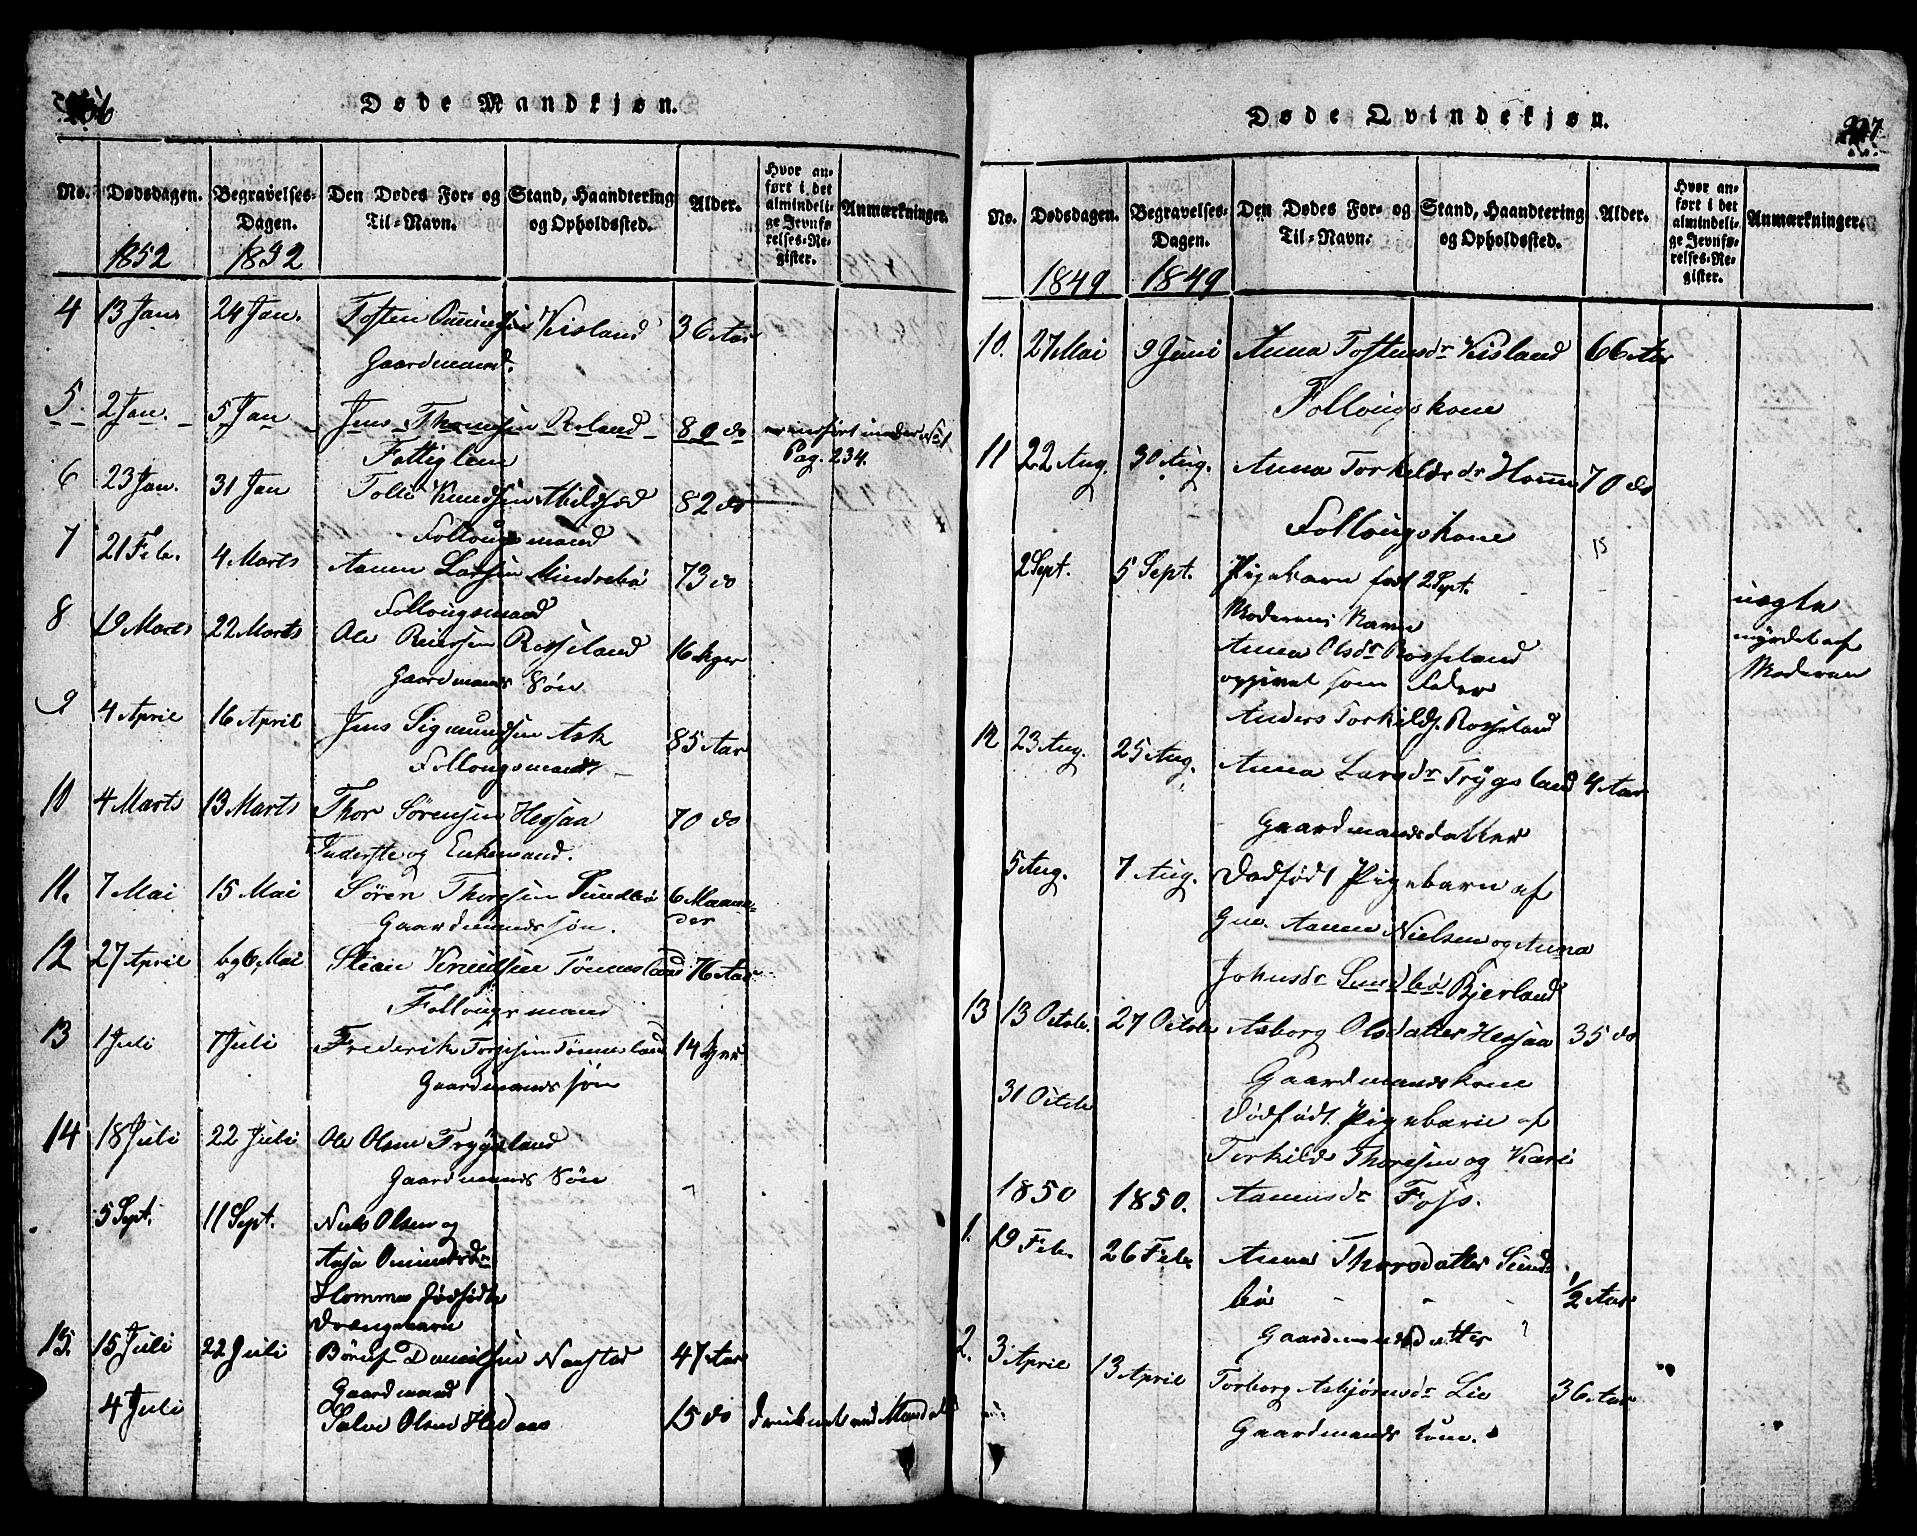 Døde Mandkjøn.
No. Dødsdagen. Begravelses-Dagen. Den Dødes For- og Til-Navn. Stand, Haandtering og Opholdssted. Alder. Hvor anført i det almindelige Jevnførelses-Register. Anmærkninger.
1852 1852
4 13 Jan. 24 Jan. Tosten Kisland 36 Aar
Gaardmand.
5. 2 Jan. 5 Jan Jens Thomesen Roland 80 do
Pag. 234.
Fattiglem
6 23 Jan. 31 Jan Tolle Knudsen 82 do
Follougsmand
7 21 Feb. 4 Marts Aanen Larsen Mindrebø 73 do
Follougsmand
8 19 Marts 22 Marts Ole Reiersen Rosseland 16 Uger
Gaardmands Søn
9 4 April 16 April Jens Sigmundsen Ask 85 Aar
Follougsmand
10 4 Marts 13 Marts Thor Sørensen Hegsaa 70 do
Inderste og Enkemand.
11. 7 Mai 15 Mai Søren Thoresen Sundbø 6 Maane-
der
Gaardmands søn.
12 27 April 6 Mai Knudsen Tønnesland 76 Aar
Follougsmand
13 1 Juli 7 Juli Frederik Torjesen Tønnesland 14 Uger
Gaardmands søn
14 18 Juli 22 Juli Ole Olsen Trygsland
Gaardmands Søn
5 Sept. 11 Sept. Niels Olsen og
Aasa Ommundsdr
Homme dødfødte
Drængebarn
15. 15 Juli 22 Juli Danielsen 47 Aar
Gaardmand
4 Juli Salve Olsen 15 do druknet ved Mandal
Døde Qvindekjøn.
No. Dødsdagen. Begravelses-Dagen. Den Dødes For- og Til-Navn. Stand, Haandtering og Opholdssted. Alder. Hvor anført i det almindelige Jevnførelses-Register. Anmærkninger.
1849 1849
10. 27 Mai 9 Juni Anna Tostensdr Kisland 66 Aar
Follougskone
11 22 Aug. 30 Aug. Anna Torkildsdr Homme 70 do
Follougskone
2 Sept. 5 Sept. Pigebarn født 2 Sept.
Moderens Navn
Anna Olsdr Rosseland
opgivet som Fader
Anders Torkilds. Rosseland
uægte
myrdet af
Moderen
12 23 Aug. 25 Aug. Anna Larsdr Trygsland 4 Aar
Gaardmandsdatter
5 Aug. 7 Aug. Dødfødt Pigebarn af
Gm. Aanen Nielsen og Anna
Johnsdr Sundbø Bjerland
13 13 Octob. 27 Octob Asborg Olsdatter Hegsaa 35 do
Gaardmandskone
31 Octob Dødfødt Pigebarn af
Torkild Thoresen og Kari
Aanensdr Foss.
1850 1850.
1. 19 Feb. 26 Feb. Anna Thorsdatter Sund-
bø 1/2 Aar
Gaardmandsdatter
2. 3 April 13 April Torborg Asbjørnsdr Lie 36 Aar
Gaardmands kone.